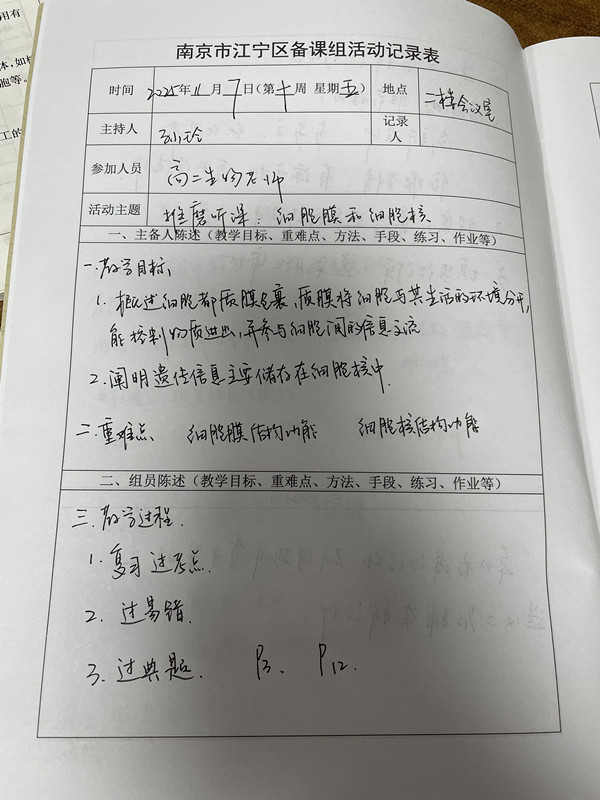 用有
体,如
胞等。
工的
南京市江宁区备课组活动记录表
时间 2025年11月7日(第十周 星期五) 地点 二楼会议室
主持人 孙玲 记录人
参加人员 高二生物老师
活动主题 推磨听课:细胞膜和细胞核
一、主备人陈述(教学目标、重难点、方法、手段、练习、作业等)
一.教学目标:
1. 概述细胞都由质膜包裹,质膜将细胞与其生活的环境分开,
能控制物质进出,并参与细胞间的信息交流
2. 阐明遗传信息主要储存在细胞核中.
二.重难点 细胞膜结构功能 细胞核结构功能
二、组员陈述(教学目标、重难点、方法、手段、练习、作业等)
三.教学过程.
1. 复习过考点.
2. 过易错.
3. 过典题. P3. P12.